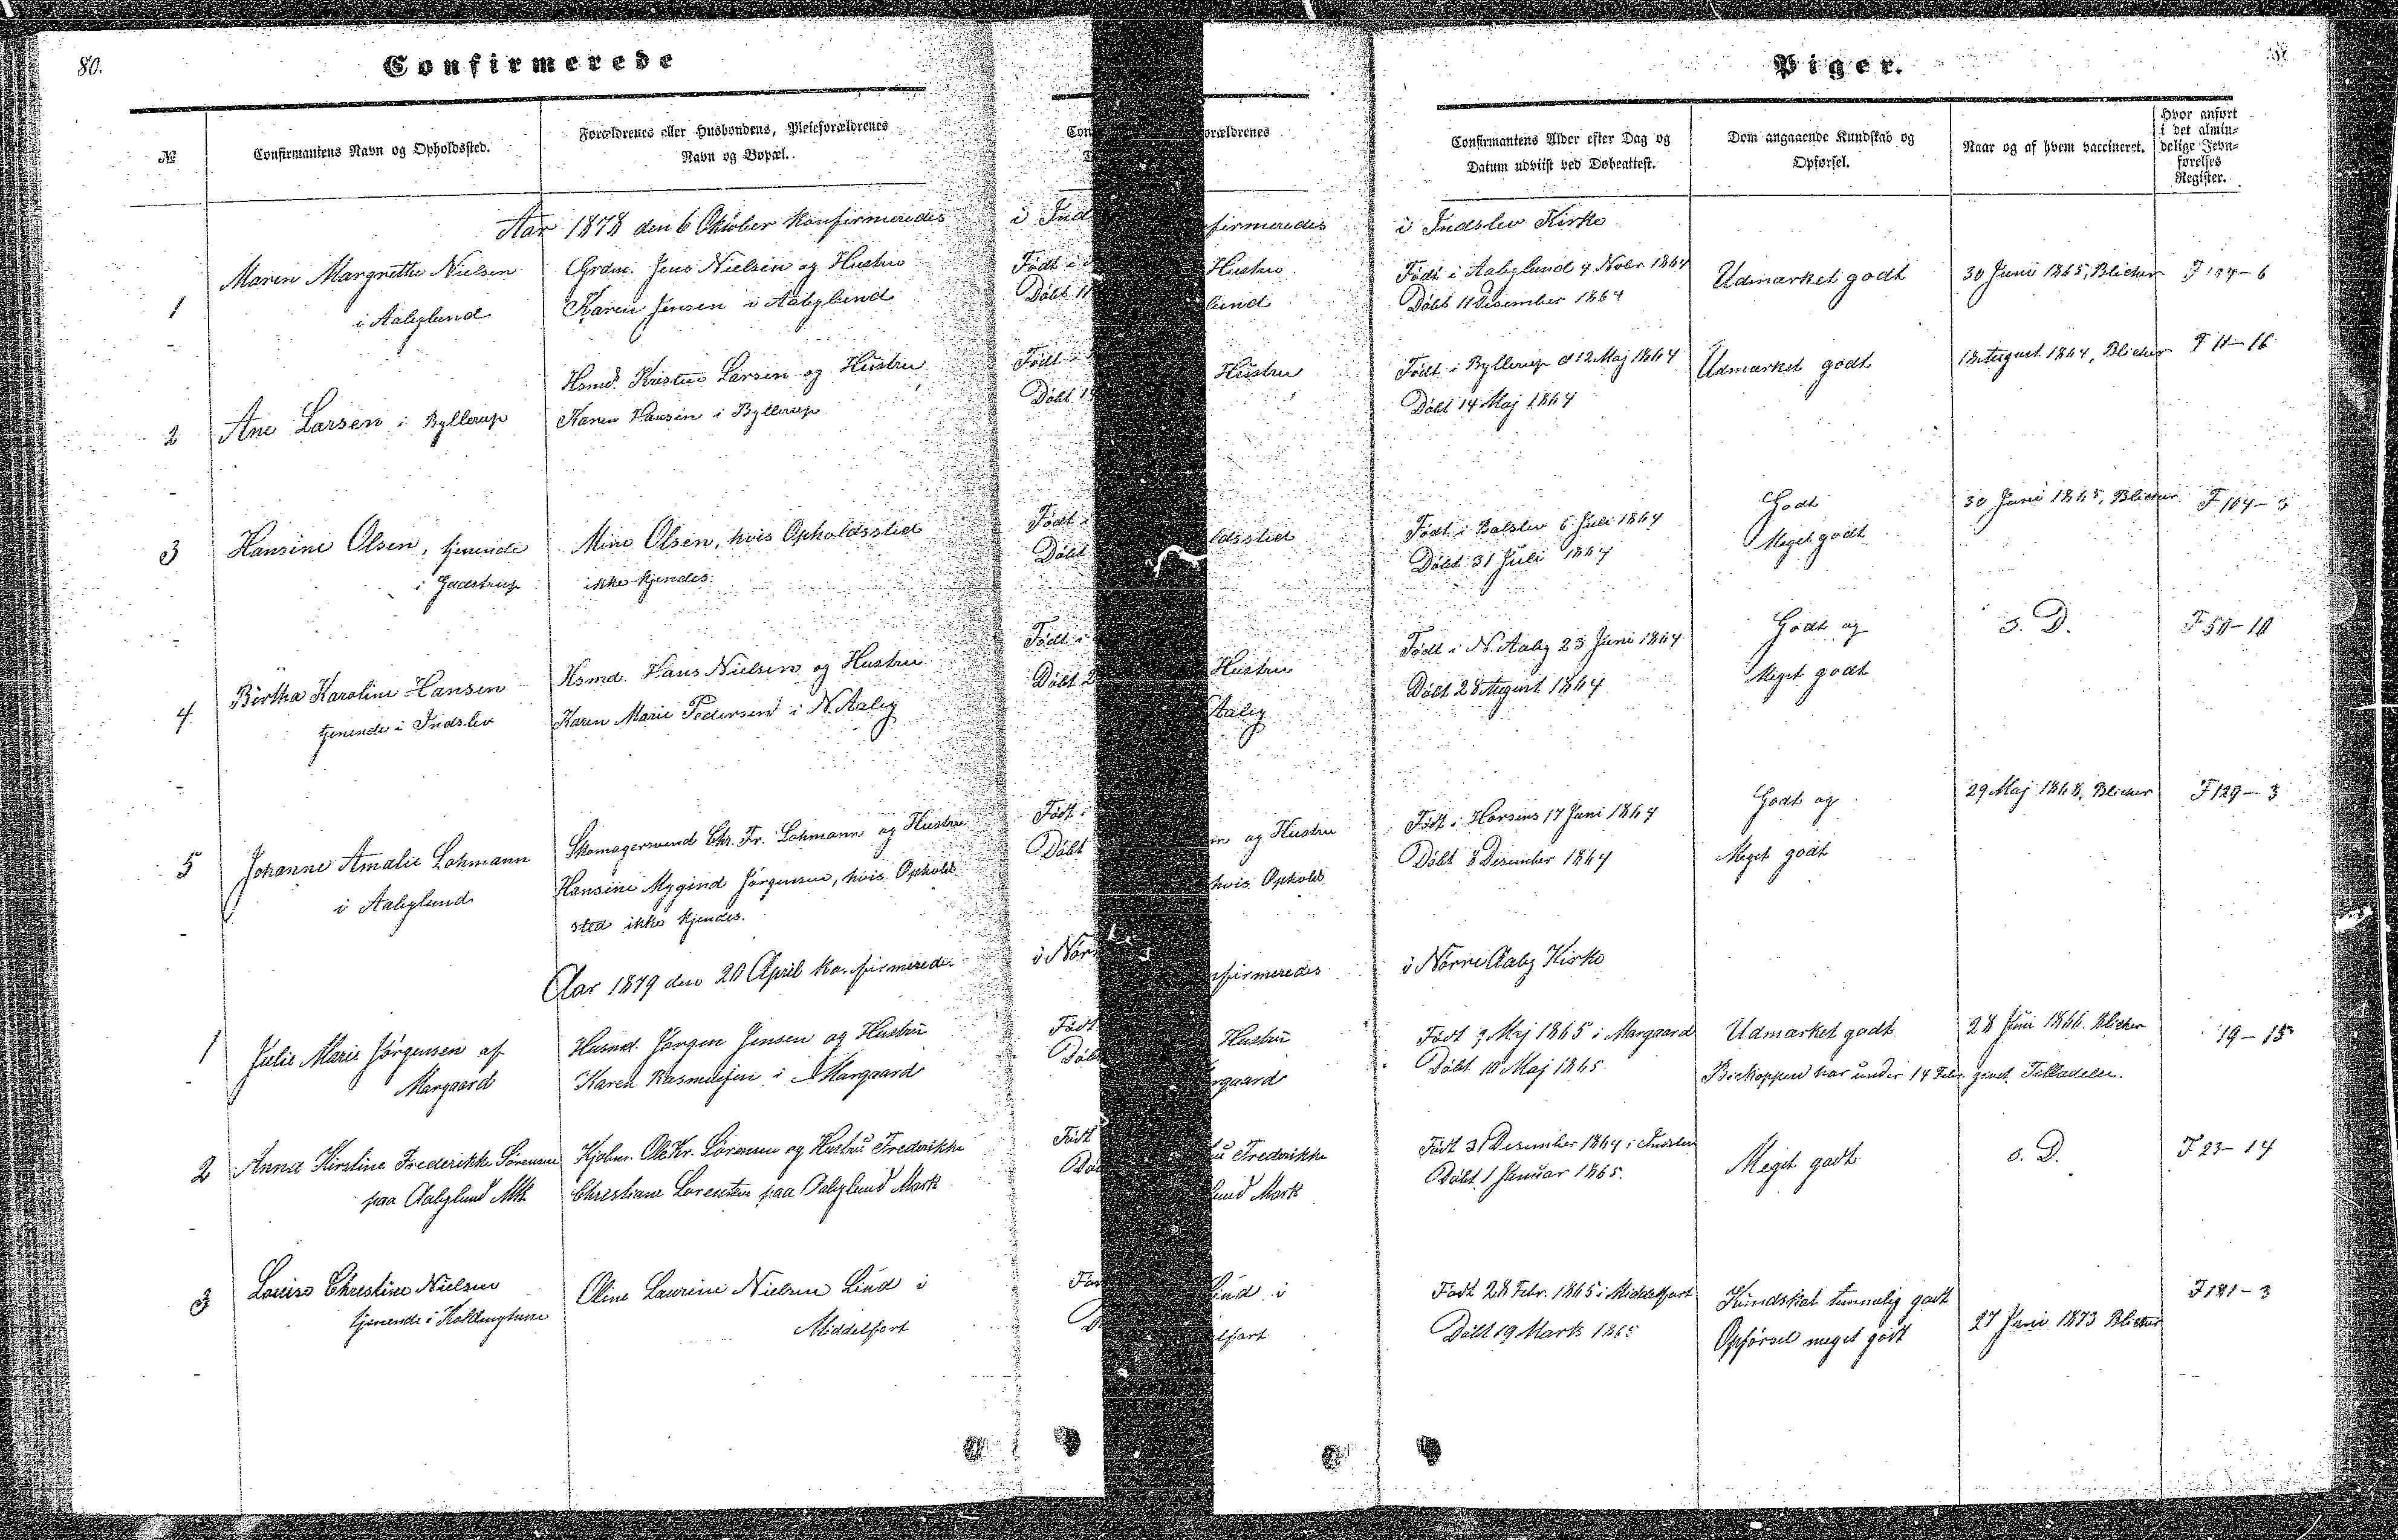 80.
Confirmerede
Piger.
№
Confirmantens Navn og Opholdssted.
Forældrenes eller Husbondens, Pleieforældrenes
Navn og Bopæl.
Confirmantens Alder efter Dag og
Datum udviist ved Døbeattest.
Dom angaaende Kundskab og
Opførsel.
Naar og af hvem vaccineret.
Hvor anført
i det almin=
delige Jevn=
førelses
Register.
Aar 1878 den 6 Oktober konfirmeredes
i Indslev Kirke
1
Maren Margrethe Nielsen
i Aabylund
Grdm. Jens Nielsen og Hustru
Karen Jensen i Aabylund
Født i Aabylund 4 Novbr 1864
Døbt 11 Desember 1864
Udmærket godt
30 Juni 1865, Blicher
2
Ane Larsen i Byllerup
Hsmd. Kristen Larsen og Hustru
Karen Hansen i Byllerup
Født i Byllerup d 12 Maj 1864
Døbt 14 Maj 1864
Udmærket godt
August 1864, Blicher
F 11-16
3
Hansine Olsen, tjenende
i Gadstrup
Mine Olsen, hvis Opholdssted
ikke kjendes.
Født i Balslev 6 Juli 1864
Døbt 31 Juli 1864
Godt
Meget godt
30 Juni 1865, Blicher
F 104-3
4
Birtha Karoline Hansen
tjenende i Indslev
Hsmd. Hans Nielsen og Hustru
Karen Marie Pedersen i N. Aaby
Født i N. Aaby 23 Juni 1864
Døbt 28 August 1864
Godt og
Meget godt
s. D.
F 50-10
5
Johanne Amalie Lohmann
i Aabylund
Skomagersvend Chr. Fr. Lohmann og Hustru
Hansine Mygind Jørgensen, hvis Opholds
sted ikke kjendes.
Født i Horsens 17 Juni 1864
Døbt 8 Desember 1864
Godt og
Meget godt
29 Maj 1868, Blicher
F 129-3
Aar 1879 den 20 April konfirmeredes
i Nørre Aaby Kirke
1
Julie Marie Jørgensen af
Margaard
Husmd. Jørgen Jensen og Hustru
Karen Rasmussen i Margaard
Født 9 Maj 1865 i Margaard
Døbt 10 Maj 1865.
Udmærket godt
Biskoppen har under 14 Febr. givet Tilladelse.
28 Juni 1866. Blicher
19-15
2
Anna Kirstine Frederikke Sørensen
paa Aabylund Mk
Hjolm. Ole Kr. Sørensen og Hustru Frederikke
Christiane Lorentzen paa Aabylund Mark
Født 31 Desember 1864 i Indslev
Døbt 1 Januar 1865.
Meget godt
s. D.
F 23-14
3
Louise Christine Nielsen
tjenende i
Oline Laurine Nielsen Lind i
Middelfart
Født 28 Febr. 1865 i Middelfart
Døbt 19 Marts 1865
Kundskab temmelig godt
Opførsel meget godt
27 Juni 1873 Blicher
F 181-3